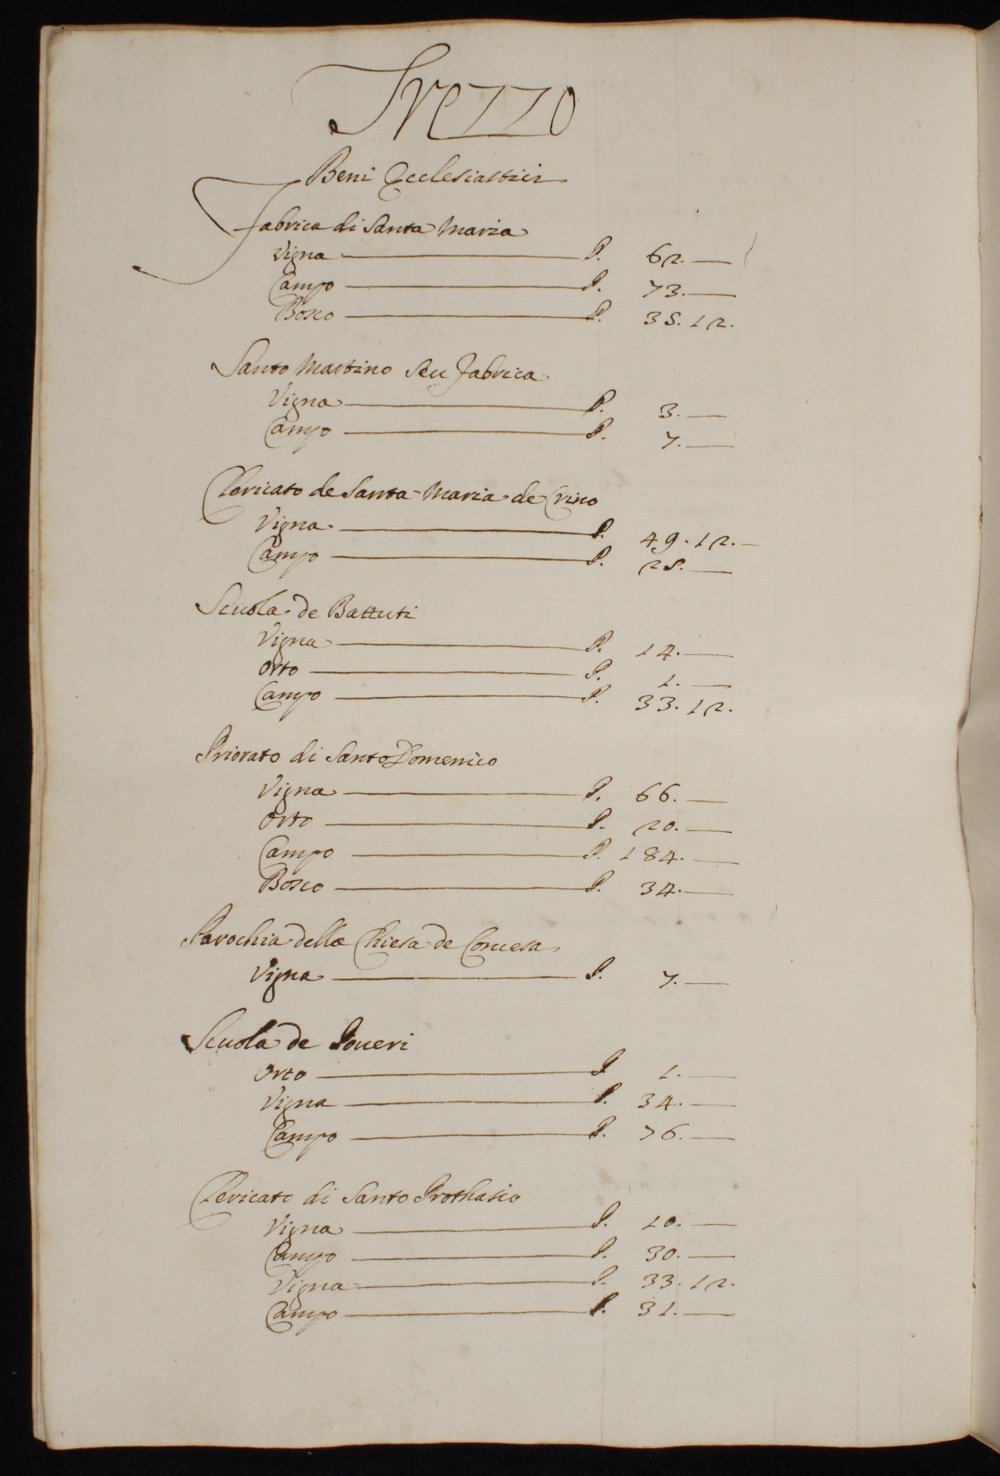 Trezzo
Beni Ecclesiastici
Fabrica di Santa Maria
Vigna — P. 62. —
Campo — P. 73. —
Bosco — P. 35. 12.
Santo Martino seu Fabrica
Vigna — P. 3. —
Campo — P. 7. —
Clericato de Santa Maria de Crino
Vigna — P. 49. 12. —
Campo — P. 25. —
Scuola de Battuti
Vigna — P. 14. —
Orto — P. 1. —
Campo — P. 33. 12.
Priorato di Santo Domenico
Vigna — P. 66. —
Orto — P. 20. —
Campo — P. 184. —
Bosco — P. 34. —
Parochia della Chiesa de Concesa
Vigna — P. 7. —
Scuola de Poueri
Orto — P 1. —
Vigna — P. 34. —
Campo — P. 76. —
Clericato di Santo Prothasio
Vigna — P. 10. —
Campo — P. 30. —
Vigna — P. 33. 12.
Campo — P. 31. —